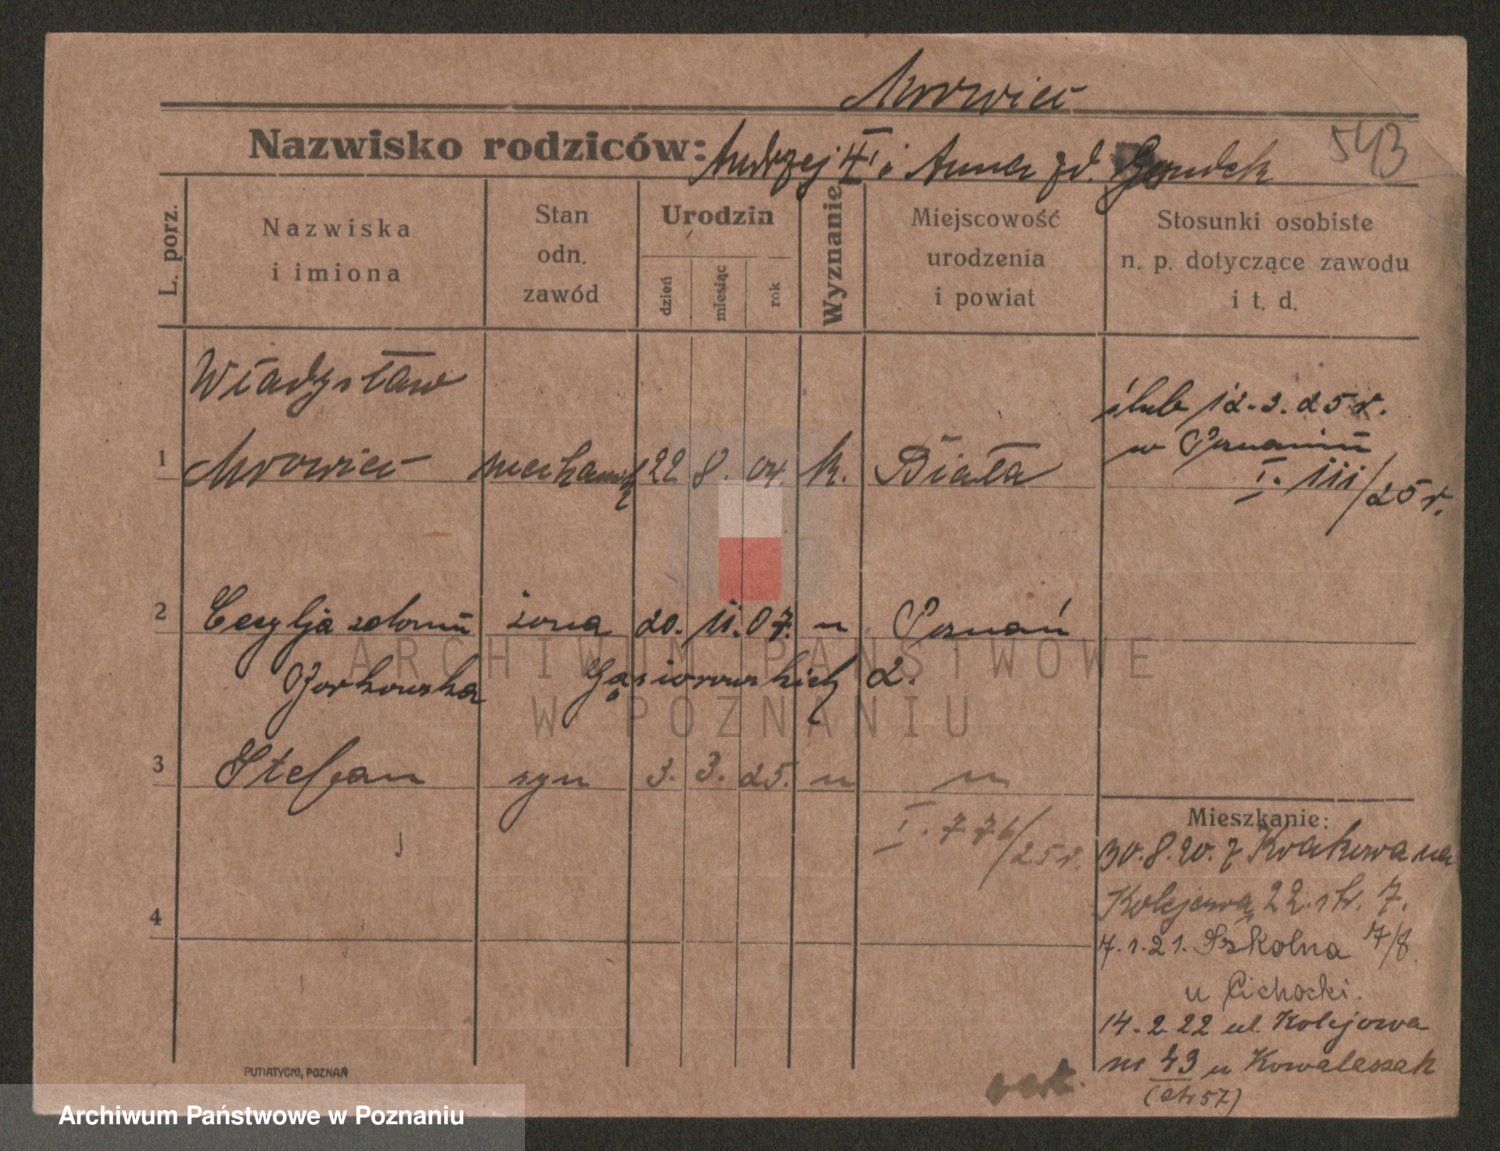 Mrowiec
543
Nazwisko rodziców: Andrzej II i Anna zd.
L. porz.
Nazwiska i imiona
Stan odn. zawód
Urodzin
dzień
miesiąc
rok
Wyznanie
Miejscowość urodzenia i powiat
Stosunki osobiste n. p. dotyczące zawodu i t. d.
Władysław
ślub 12.3.25 r.
w Poznaniu
1 Mrowiec mechanik 22 8. 04. k. Biała
I. 111/25 r.
2 Cecylja żona 20. 11. 07. " Poznań
Gąsiorowskich 2.
3 Stefan syn 3. 3. 25. " "
I. 776/25 r.
4
Mieszkanie:
30.8.20. z Krakowa na
Kolejową 22. str. 7.
7.1.21. Szkolna 7/8.
u Cichocki.
14.2.22 ul. Kolejowa
nr 43 u Kowalczak
(str 57)
PUTIATYCKI, POZNAŃ
ARCHIWUM PAŃSTWOWE
W POZNANIU
Archiwum Państwowe w Poznaniu